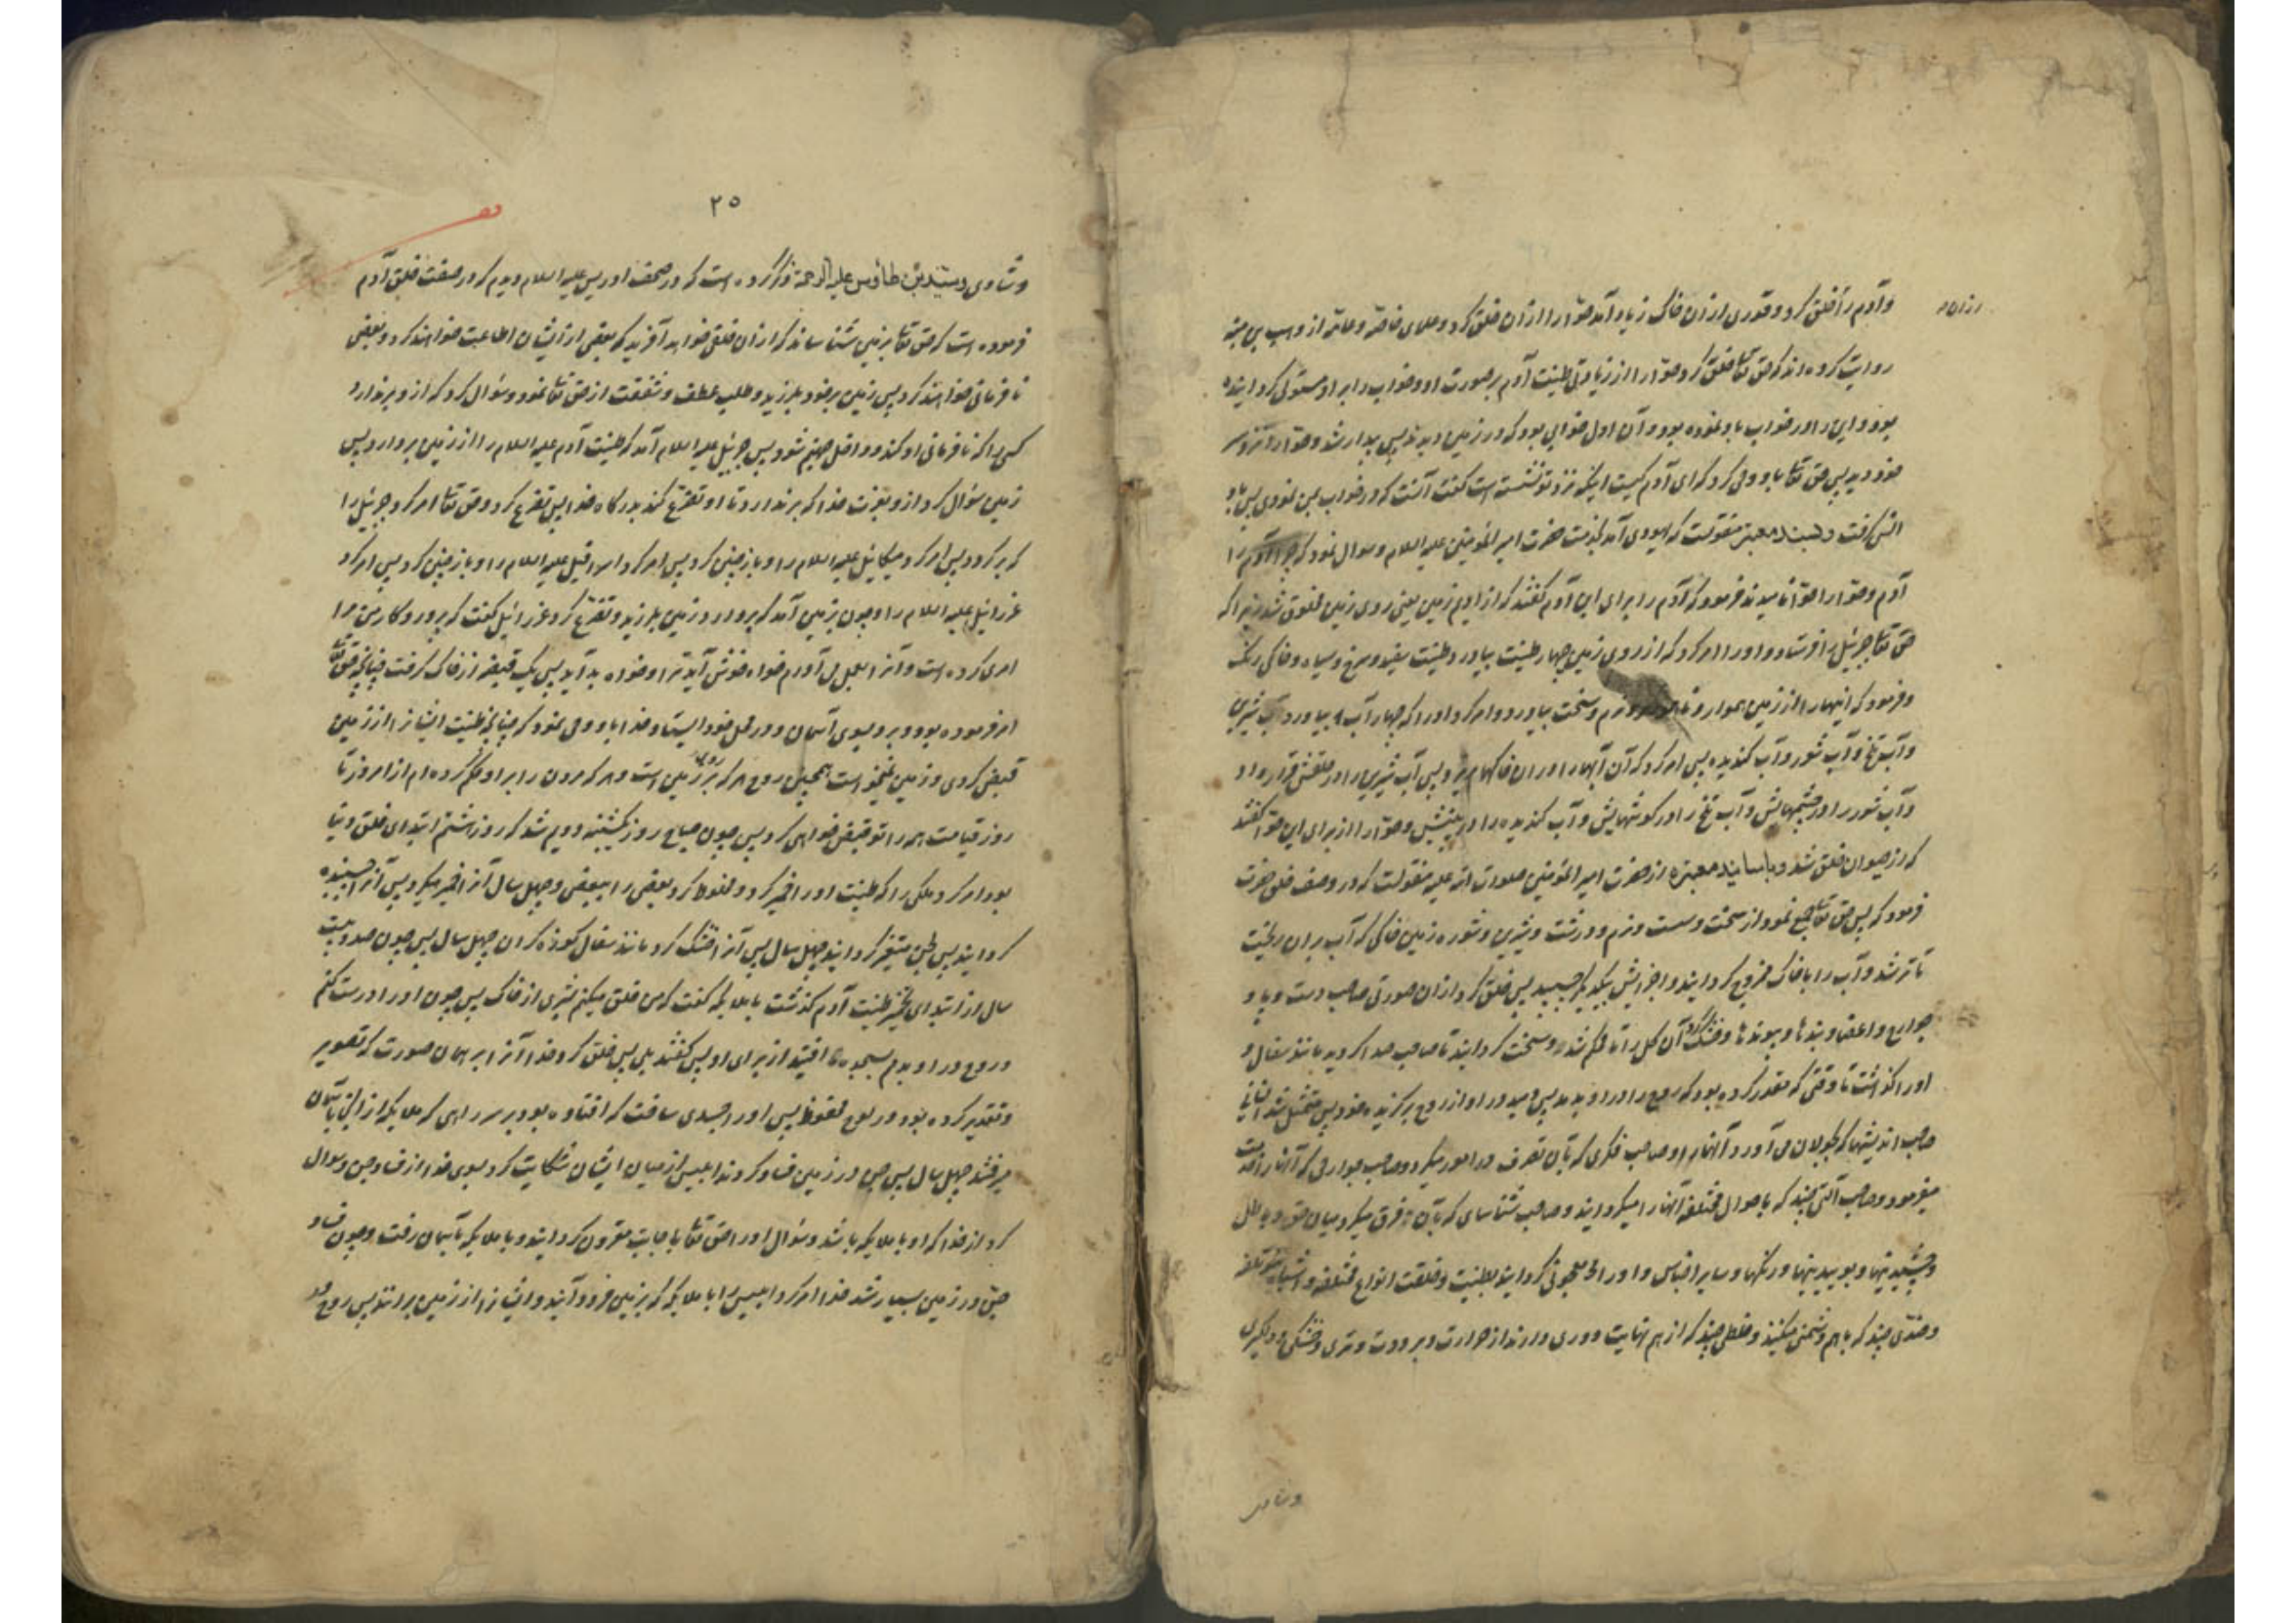 و آدم را خلق کرد و قدری از آن خاک زیاد آمد حوّا را از آن خلق کرد و علمای خاصّه و عامّه از وهب بن منبّه
روایت کرده اند که حق تعا خلق کرد حوّا را از زیادتی طینت آدم بر صورت او و خواب را بر او مستولی گردانیده
بود و این را در خواب باو نموده بود و آن اول خوابی بود که در زمین دیده شد پس بیدار شد و حوّا را نزد سر
خود دید پس حق تعا باو وحی کرد که ای آدم کیست اینکه نزد تو نشسته است گفت آنست که در خواب بمن نمودی پس باو
انس گرفت و بسند معتبر منقولست که یهودی آمد بخدمت حضرت امیر المؤمنین علیه السلام و سوال نمود که چرا آدم را
آدم و حوّا را حوّا نامیدند فرمود که آدم را برای این آدم گفتند که از ادیم زمین یعنی روی زمین مخلوق شد زیرا که
حق تعا جبرئیل را فرستاد و او را امر کرد که از روی زمین چهار طینت بیاورد طینت سفید و سرخ و سیاه و خاکی رنک
و فرمود که اینها را از زمین هموار و ناهموار و نرم و سخت بیاورد و امر کرد او را که چهار آب بیاورد آب شیرین
و آب تلخ و آب شور و آب گندیده پس امر کرد که آن آبها را در آن خاکها بریزد پس آب شیرین را در حلقش قرار داد
و آب شور را در چشمهایش و آب تلخ را در گوشهایش و آب گندیده را در بینیش و حوّا را از برای این حوّا گفتند
که از حیوان خلق شد و باسانید معتبره از حضرت امیر المؤمنین صلوات الله علیه منقولست که در وصف خلق حضرت
فرمود که پس حق تعا جمع نمود از سخت و سست و نرم و درشت و شیرین و شوره زمین خاکی که آب بران ریخت
تا تر شد و آب را با خاک ممزوج گردانید و اجزایش بیکدیگر چسبید پس خلق کرد از ان صورتی صاحب دست و پا و
جوارح و اعضا و بندها و پیوندها و خشک کرد آن گل را تا محکم شد و سخت گردانید تا صاحب صدا گردید مانند سفال و
او را گذاشت تا وقتی که مقدر کرده بود که روح را در او بدمد پس دمید در او از روح برگزیده خود پس متمثل شد انسانی
صاحب اندیشها که بجولان می آورد آنها را و صاحب فکری که بآن تصرف در امور میکرد و صاحب جوارحی که آنها را خدمت
میفرمود و صاحب آلتی چند که باحوال مختلفه آنها را میگردانید و صاحب شناسای که بآن فرق میکرد میان حق و باطل
و چشیدنیها و بوییدنیها و رنگها و سایر اجناس و او را معجونی گردانید بطینت و خلقت انواع مختلفه و اشباه مؤتلفه
و ضدی چند که با هم دشمنی میکنند و خلطی چند که از هم نهایت دوری دارند از حرارت و برودت و تری و خشکی و دلگیری
و شادی
۲۵
و شادی و سیّد بن طاوس علیه الرحمه ذکر کرده است که در صحف ادریس علیه السلام دیدم که در صفت خلق آدم
فرموده است که حق تعا بزمین شناساند که از ان خلقی خواهد آفرید که بعضی از ایشان اطاعت خواهند کرد و بعضی
نافرمانی خواهند کرد پس زمین بر خود بلرزید و طلب عطف و شفقت از حق تعا نمود و سؤال کرد که از و بر ندارد
کسی را که نافرمانی او کند و داخل جهنم شود پس جبرئیل علیه السلام آمد که طینت آدم علیه السلام را از زمین بردارد پس
زمین سؤال کرد از و بعزت خدا که بر ندارد تا او تضرّع کند بدرگاه خدا پس تضرع کرد و حق تعا امر کرد جبرئیل را
که برگردد پس امر کرد میکائیل علیه السلام را و باز چنین کرد پس امر کرد اسرافیل علیه السلام را و باز چنین کرد پس امر کرد
عزرائیل علیه السلام را و چون بزمین آمد که بردارد زمین بلرزید و تضرّع کرد عزرائیل گفت که پروردگار من مرا
امری کرده است و آنرا بعمل می آورم خواه خوش آید ترا و خواه بد آید پس یک قبضه از خاک گرفت چنانچه حق تعا
امر فرموده بود و برد بسوی آسمان و در محل خود ایستاد خدا باو وحی نمود که چنانچه طینت ایشانرا از زمین
قبض کردی و زمین نمیخواست همچنین روح هر که بر روی زمین است و هر که مردن را بر او حکم کرده ام از امروز تا
روز قیامت همه را تو قبض خواهی کرد پس چون صباح روز یکشنبه دویم شد که روز هشتم ابتدای خلق دنیا
بود امر کرد ملکی را که طینت او را خمیر کرد و مخلوط کرد بعضی را ببعضی و چهل سال آنرا خمیر میکرد پس آنرا چسبنده
گردانید پس لجن متغیر گردانید چهل سال پس آنرا خشک کرد مانند سفال کوزه گران چهل سال پس چون صد و بیست
سال از ابتدای تخمیر طینت آدم گذشت با ملایکه گفت که من خلق میکنم بشری از خاک پس چون او را درست کنم
و روح در او بدمم بسجده افتید از برای او پس گفتند بلی پس خلق کرد خدا آنرا بر همان صورت که تصویر
و تقدیر کرده بود در لوح محفوظ پس او را جسدی ساخت که افتاده بود بر سر راهی که ملایکه از انجا بآسمان
میرفتند چهل سال پس جن در زمین فساد کردند ابلیس از میان ایشان شکایت کرد بسوی خدا از فساد جن و سوال
کرد از خدا که او با ملایکه باشد و سؤال او را حق تعا باجابت مقرون گردانید و با ملایکه بآسمان رفت و چون فساد
جن در زمین بسیار شد خدا امر کرد ابلیس را با ملایکه که بزمین فرود آیند و ایشانرا از زمین برانند پس روح